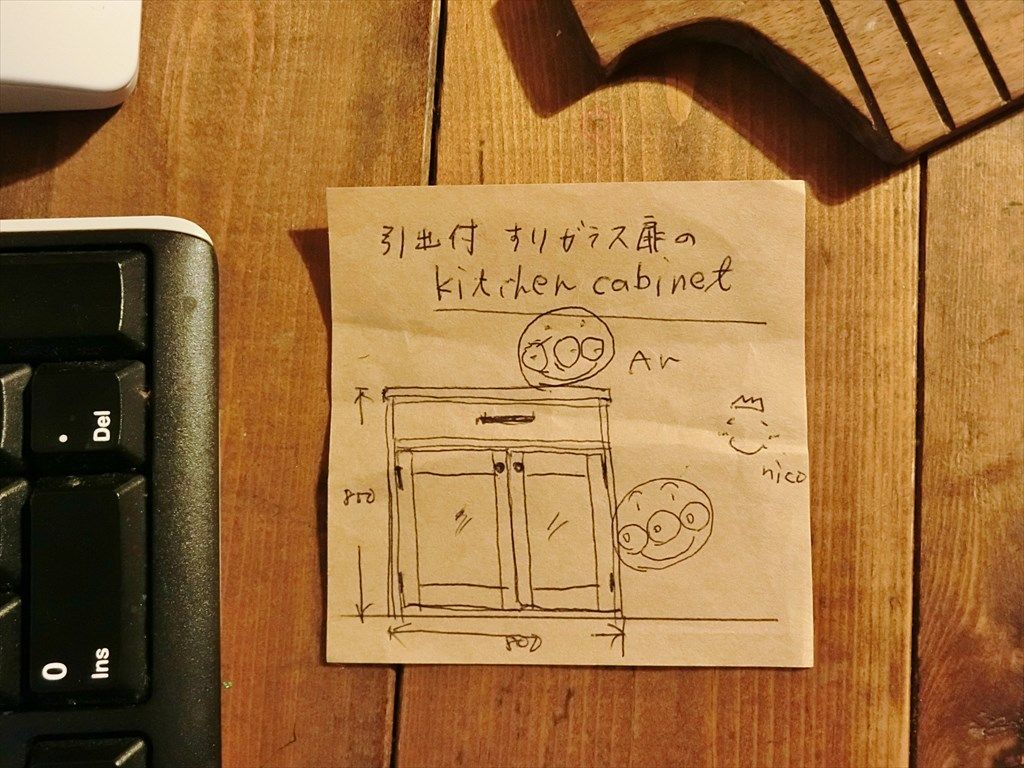 引出付 すりガラス扉の
kitchen cabinet
Ar
nico
800
800
. Del
0 Ins